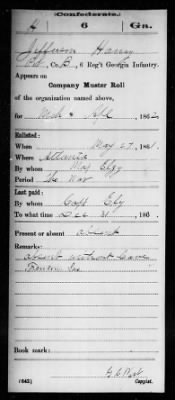 (Confederate.)
H 6 Ga.
Jefferson Haney
Pvt, Co. B, 6 Reg't Georgia Infantry.
Appears on
Company Muster Roll
of the organization named above,
for Mch & Apl, 1862
Enlisted:
When May 27, 1861
Where Atlanta
By whom Maj
Period The War
Last paid:
By whom Capt Ely
To what time Dec 31, 186
Present or absent absent
Remarks:
absent without leave
Book mark:
(642)
Copyist.